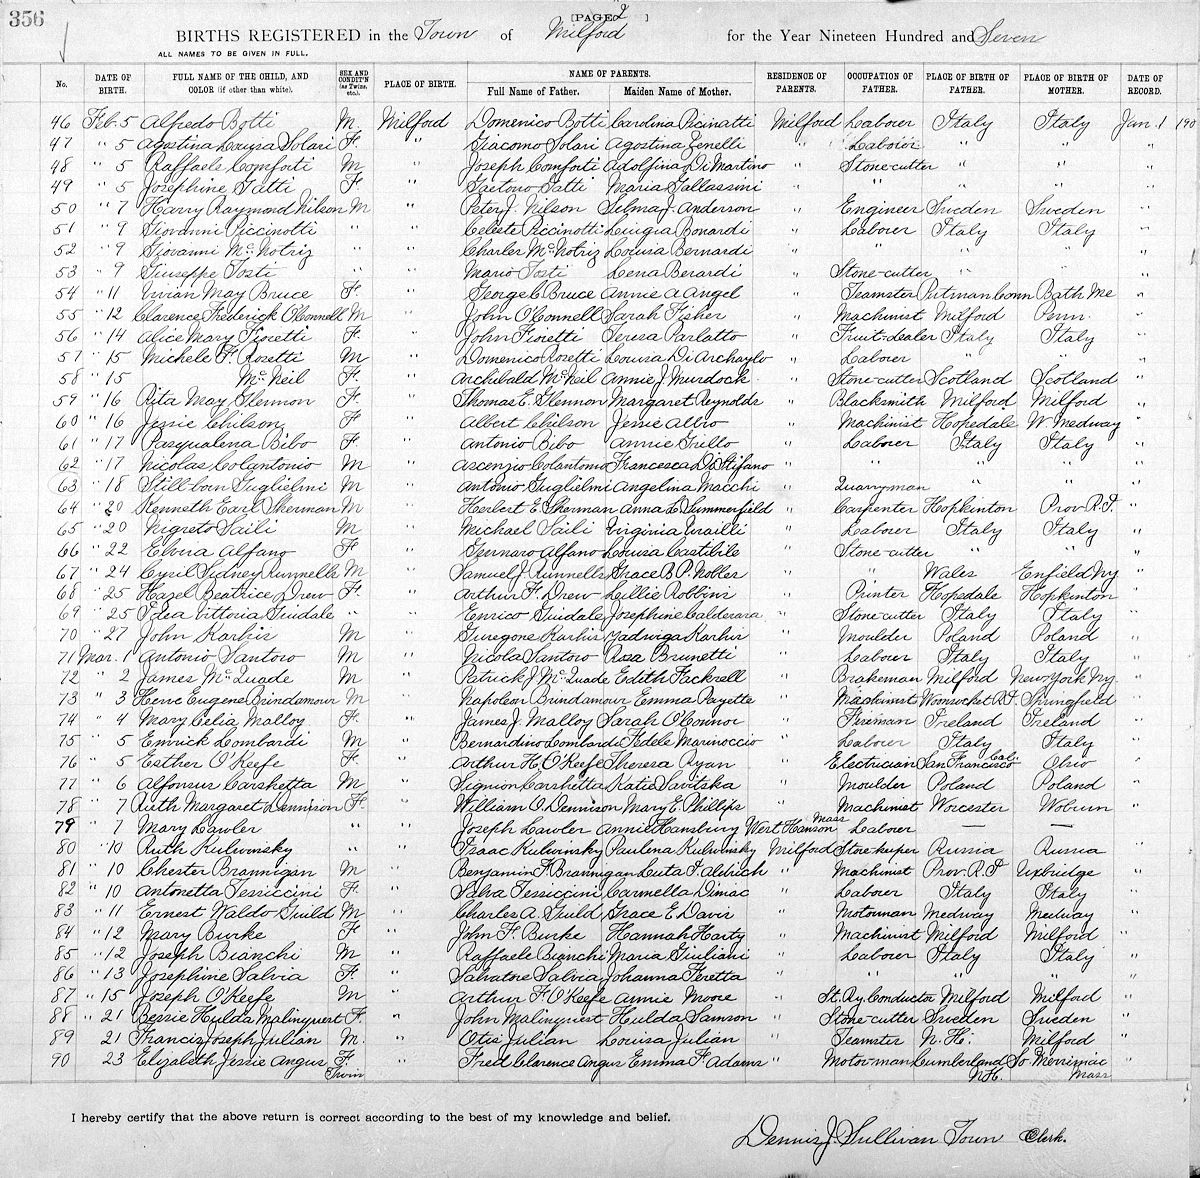 356
[PAGE 2 ]
BIRTHS REGISTERED in the Town of Milford for the Year Nineteen Hundred and Seven
ALL NAMES TO BE GIVEN IN FULL.
No. DATE OF BIRTH. FULL NAME OF THE CHILD, AND COLOR (if other than white). SEX AND CONDIT'N (as Twins, etc.). PLACE OF BIRTH. NAME OF PARENTS. Full Name of Father. Maiden Name of Mother. RESIDENCE OF PARENTS. OCCUPATION OF FATHER. PLACE OF BIRTH OF FATHER. PLACE OF BIRTH OF MOTHER. DATE OF RECORD.
46 Feb. 5 Alfredo Botti M Milford Domenico Botti Carolina Picinatti Milford Laborer Italy Italy Jan. 1 190
47 " 5 Agostina Louisa Solari F. " Giacomo Solari Agostina Zenelli " Laborer " " "
48 " 5 Raffaele Comforti M " Joseph Comforti Adolfina Di Martino " Stone-cutter " " "
49 " 5 Josephine Tatti F " Gaetono Tatti Maria Gallassini " " " " "
50 " 7 Harry Raymond Nilson M " Peter J. Nilson Selma J. Anderson " Engineer Sweden Sweden "
51 " 9 Giovanni Piccinotti " " Celeste Piccinotti Luigia Bonardi " Laborer Italy Italy "
52 " 9 Giovanni McNotriz " " Charles McNotriz Louisa Bernardi " " " " "
53 " 9 Giuseppe Tosti " " Mario Tosti Lena Berardi " Stone-cutter " " "
54 " 11 Vivian May Bruce F " George C Bruce Annie A Angel " Teamster Putman Conn Bath Me "
55 " 12 Clarence Frederick O'Connell M " John O'Connell Sarah Fisher " Machinist Milford Penn. "
56 " 14 Alice Mary Fioretti F. " John Fioretti Teresa Parlatto " Fruit-dealer Italy Italy "
57 " 15 Michele F. Rosetti M " Domenico Rosetti Louisa Di Archaylo " Laborer " " "
58 " 15 McNeil F. " Archibald McNeil Annie J Murdock " Stone-cutter Scotland Scotland "
59 " 16 Rita May Glennon F " Thomas E. Glennon Margaret Reynolds " Blacksmith Milford Milford "
60 " 16 Jessie Chilson F " Albert Chilson Jessie Albro " Machinist Hopedale W. Medway "
61 " 17 Pasqualena Bibo F " Antonio Bibo Annie Grillo " Laborer Italy Italy "
62 " 17 Nicolas Colantonio M " Ascenzio Colantonio Francesca Di Stifano " " " " "
63 " 18 Still-born Guglielmi M " Antonio Guglielmi Angelina Macchi " Quarryman " " "
64 " 20 Kenneth Earl Sherman M " Herbert E. Sherman Anna L. Summerfield " Carpenter Hopkinton Prov. R.I. "
65 " 20 Nigreto Saili M " Michael Saili Virginia " Laborer Italy Italy "
66 " 22 Elvira Alfano F " Gennaro Alfano Louisa Castibile " Stone-cutter " " "
67 " 24 Cyril Sidney Runnells M " Samuel J Runnells Grace B. P. Nobles " " Wales Enfield Ny "
68 " 25 Hazel Beatrice Drew F. " Arthur F. Drew Lellie Robbins " Printer Hopedale Hopkinton "
69 " 25 Idea Vittoria Guidale " " Enrico Guidale Josephine Calderara " Stone-cutter Italy Italy "
70 " 27 John Karhis M " Karhis Jadwiga Karhis " Moulder Poland Poland "
71 Mar. 1 Antonio Santoro M " Nicola Santoro Rosa Brunetti " Laborer Italy Italy "
72 " 2 James McQuade M " Patrick J. McQuade Edith Fackrell " Brakeman Milford New York Ny. "
73 " 3 Eugene Brindamour M " Napoleon Brindamour Emma Payette " Machinist Woonsocket R.I. Springfield "
74 " 4 Mary Celia Malloy F " James J. Malloy Sarah O'Connor " Fireman Ireland Ireland "
75 " 5 Emrick Lombardi M " Bernardino Lombardi Fidele Marinoccio " Laborer Italy Italy "
76 " 5 Esther O'Keefe F. " Arthur H. O'Keefe Theresa Ryan " Electrician San Francisco Cal. Ohio "
77 " 6 Alfonsus Carshetta M " Signion Carshetta Katie Savitska " Moulder Poland Poland "
78 " 7 Ruth Margaret Dennison F " William O. Dennison Mary E. Phillips " Machinist Worcester Woburn "
79 " 7 Mary Lawler " " Joseph Lawler Annie Hansbury West Hanson Mass Laborer — — "
80 " 10 Ruth Kulvinsky " " Isaac Kulvinsky Paulena Kulvinsky Milford Store-keeper Russia Russia "
81 " 10 Chester Brannigan M " Benjamin F. Brannigan Leeta I. Aldrich " Machinist Prov. R.I Uxbridge "
82 " 10 Antonetta Tessiccini F " Salva Tessiccini Carmella Dimac " Laborer Italy Italy "
83 " 11 Ernest Waldo Guild M " Charles A. Guild Grace E Davis " Motorman Medway Medway "
84 " 12 Mary Burke F " John F. Burke Hannah Harty " Machinist Milford Milford "
85 " 12 Joseph Bianchi M " Raffaele Bianchi Maria Giuliani " Laborer Italy Italy "
86 " 13 Josephine Salvia F. " Salvatore Salvia Johanna Feretta " " " " "
87 " 15 Joseph O'Keefe M " Arthur F. O'Keefe Annie Moore " St. Ry. Conductor Milford Milford "
88 " 21 Bessie Hulda Malinquest F. " John Malinquest Hulda Samson " Stone-cutter Sweden Sweden "
89 21 Francis Joseph Julian M. " Otis Julian Louisa Julian " Teamster N. H. Milford "
90 " 23 Elizabeth Jessie Angus F. Twin " Fred Clarence Angus Emma F. Adams " Motor-man Cumberland N.H. So Merrimac Mass "
I hereby certify that the above return is correct according to the best of my knowledge and belief.
Dennis J. Sullivan Town Clerk.